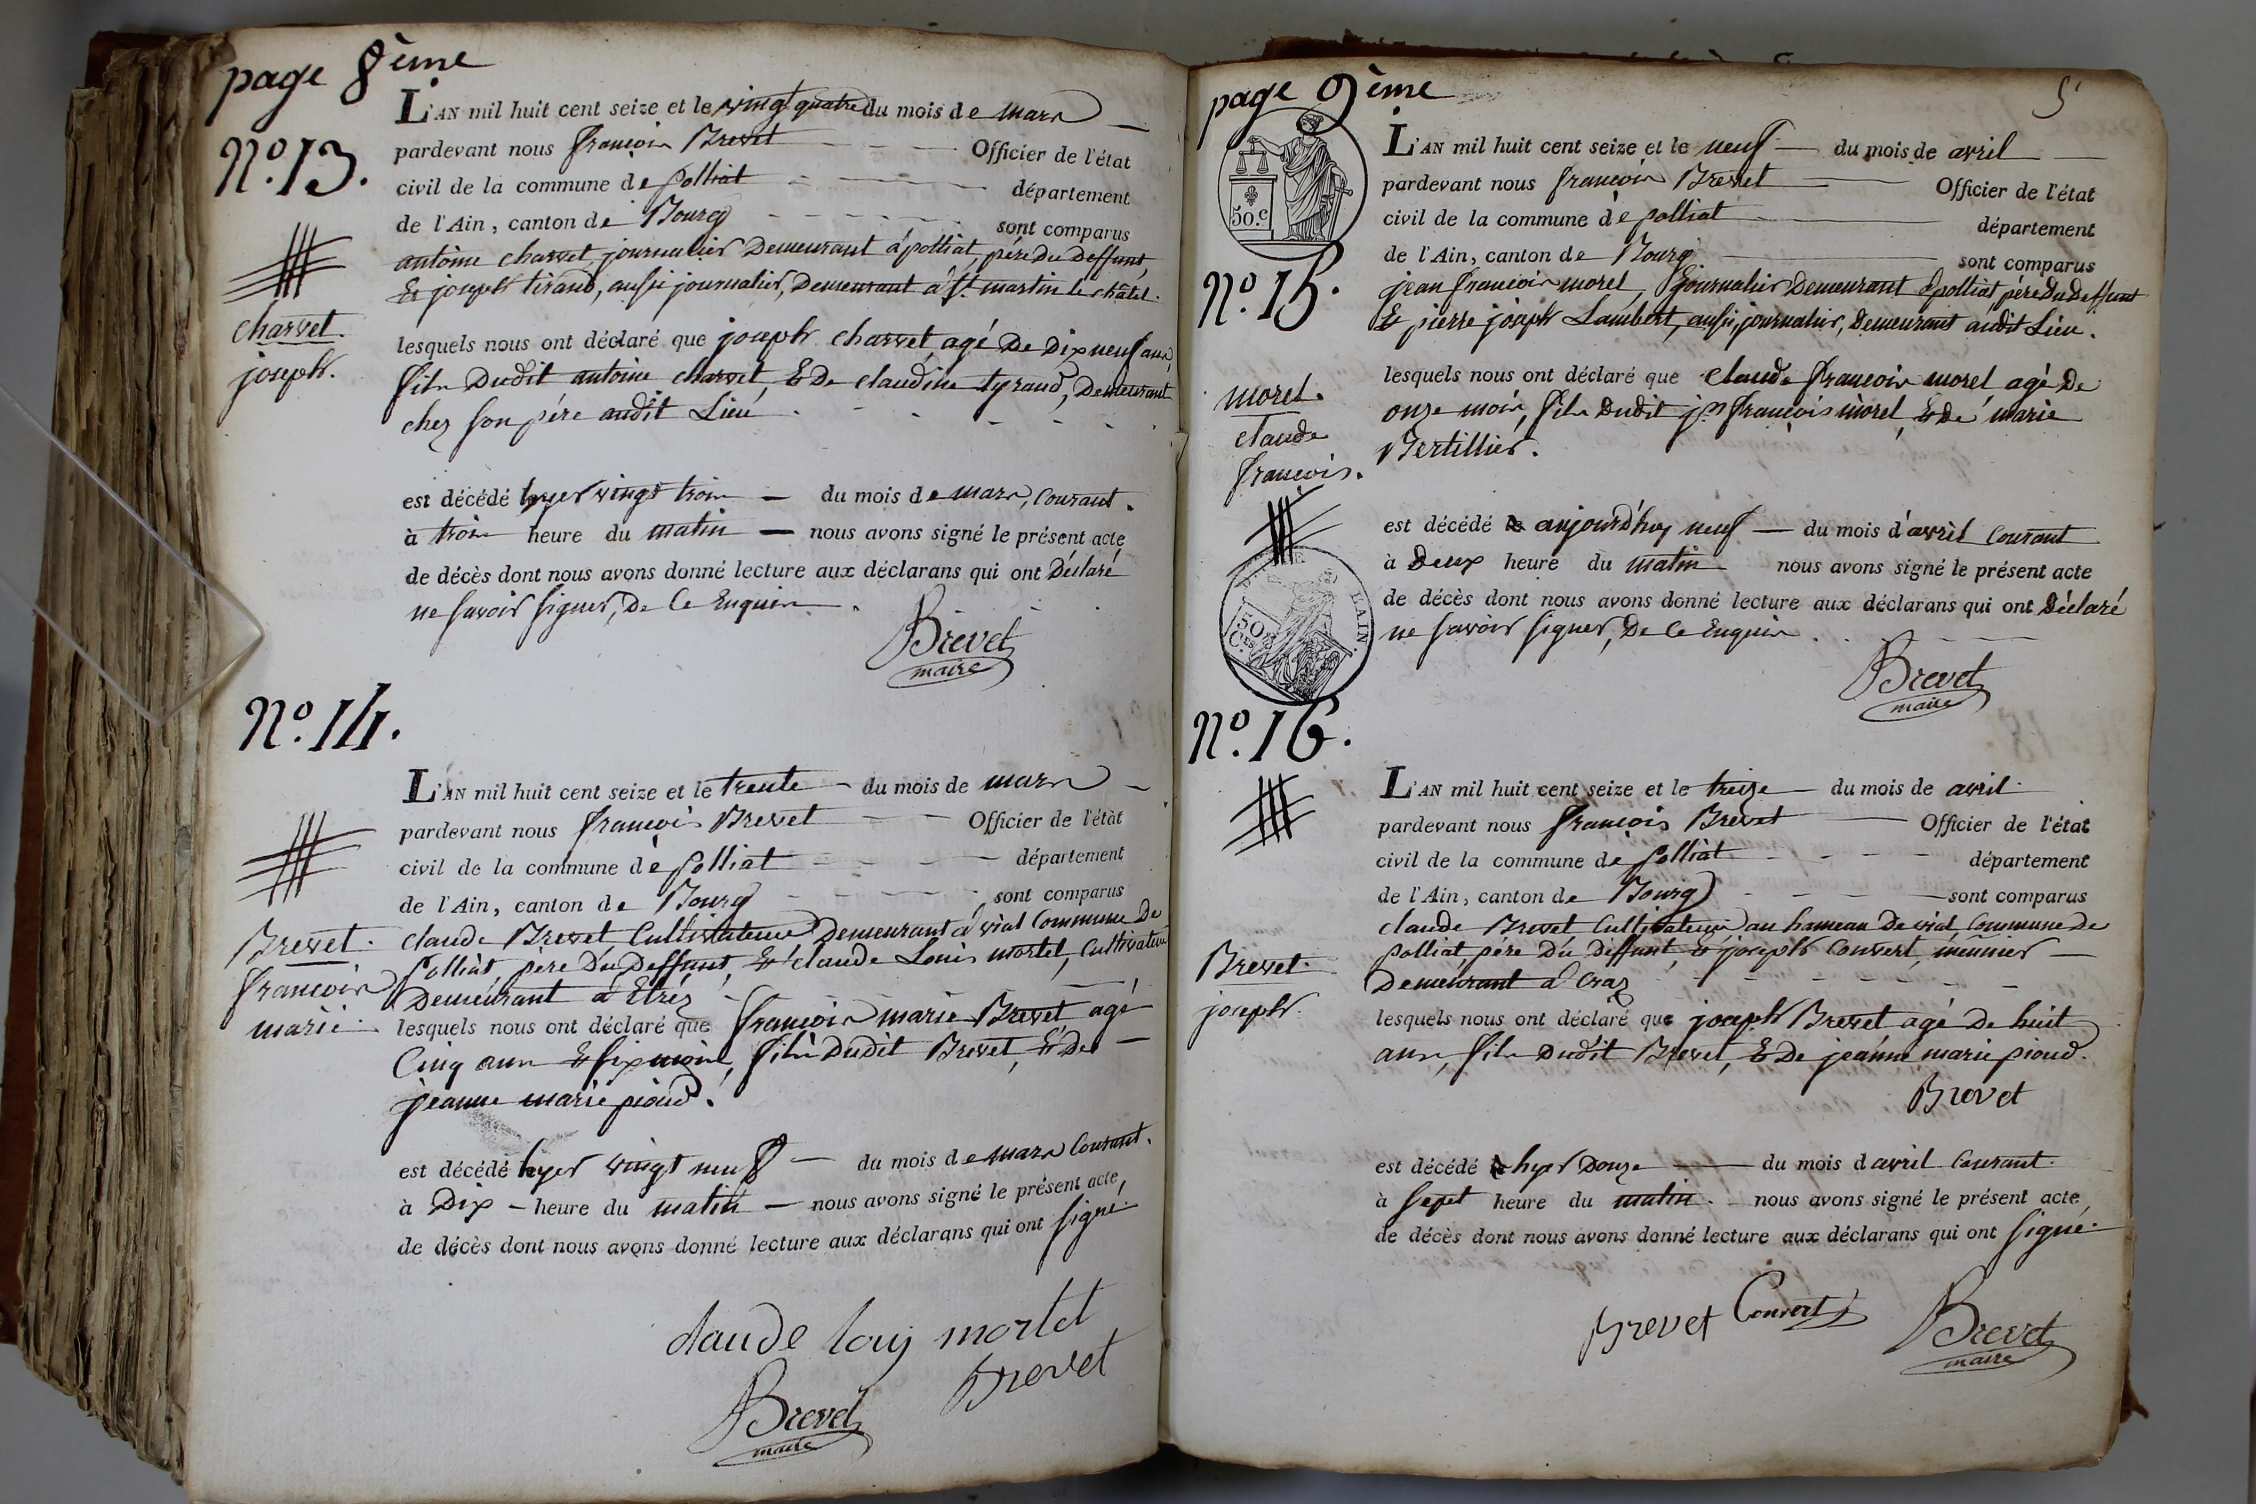 page 8ème
N.º 13.
charvet.
joseph.
L'AN mil huit cent seize et le vingt quatre du mois de mars
pardevant nous françois Brevet Officier de l'état
civil de la commune de polliat département
de l'Ain, canton de Bourg sont comparus
antoine charvet, journalier Demeurant à polliat, père du deffunt,
& joseph tirand, aussi journalier, Demeurant à St. martin le châtel.
lesquels nous ont déclaré que joseph charvet, agé De Dix neuf ans,
fils Dudit antoine charvet, & De claudine tyrand, Demeurant
chez son père audit Lieu.
est décédé hyer vingt trois du mois de mars, Courant.
à trois heure du matin nous avons signé le présent acte
de décès dont nous avons donné lecture aux déclarans qui ont Déclaré
ne savoir signer, De Ce Enquis.
Brevet
maire
N.º 14.
Brevet.
françois
marie.
L'AN mil huit cent seize et le trente du mois de mars
pardevant nous françois Brevet Officier de l'état
civil de la commune de polliat département
de l'Ain, canton de Bourg sont comparus
claude Brevet, Cultivateur Demeurant à vial Commune De
Polliat, père Du Deffunt, & claude Louis mortel, Cultivateur
Demeurant à Etréz
lesquels nous ont déclaré que françois marie Brevet agé
Cinq ans & six mois, fils Dudit Brevet, & De
jeanne marie pioud.
est décédé hyer vingt neuf du mois de mars Courant.
à Dix heure du matin nous avons signé le présent acte,
de décès dont nous avons donné lecture aux déclarans qui ont signé.
claude louy mortet
Brevet
Brevet
maire
page 9ème
5
50.c
N.º 15.
morel.
claude
françois.
L'AIN.
50
Ces
L'AN mil huit cent seize et le neuf du mois de avril
pardevant nous françois Brevet Officier de l'état
civil de la commune de polliat département
de l'Ain, canton de Bourg sont comparus
jean françois morel, journalier Demeurant à polliat père Du deffunt
& pierre joseph Lambert, aussi journalier, Demeurant audit Lieu.
lesquels nous ont déclaré que claude françois morel, agé De
onze mois, fils Dudit jn. françois morel, & De marie
Bertillier.
est décédé aujourd'huy neuf du mois d'avril Courant
à Deux heure du matin nous avons signé le présent acte
de décès dont nous avons donné lecture aux déclarans qui ont Déclaré
ne savoir signer, De Ce Enquis.
Brevet
maire
N.º 16.
Brevet.
joseph.
L'AN mil huit cent seize et le treize du mois de avril.
pardevant nous françois Brevet Officier de l'état
civil de la commune de polliat département
de l'Ain, canton de Bourg sont comparus
claude Brevet Cultivateur au hameau De vial, Commune de
polliat, père Du Deffunt, & joseph Convert, meunier
Demeurant à Craz
lesquels nous ont déclaré que joseph Brevet agé De huit
ans, fils Dudit Brevet, & De jeanne marie pioud.
Brevet
est décédé hyer Douze du mois d avril Courant.
à sept heure du matin. nous avons signé le présent acte
de décès dont nous avons donné lecture aux déclarans qui ont signé.
Brevet Convert
Brevet
maire